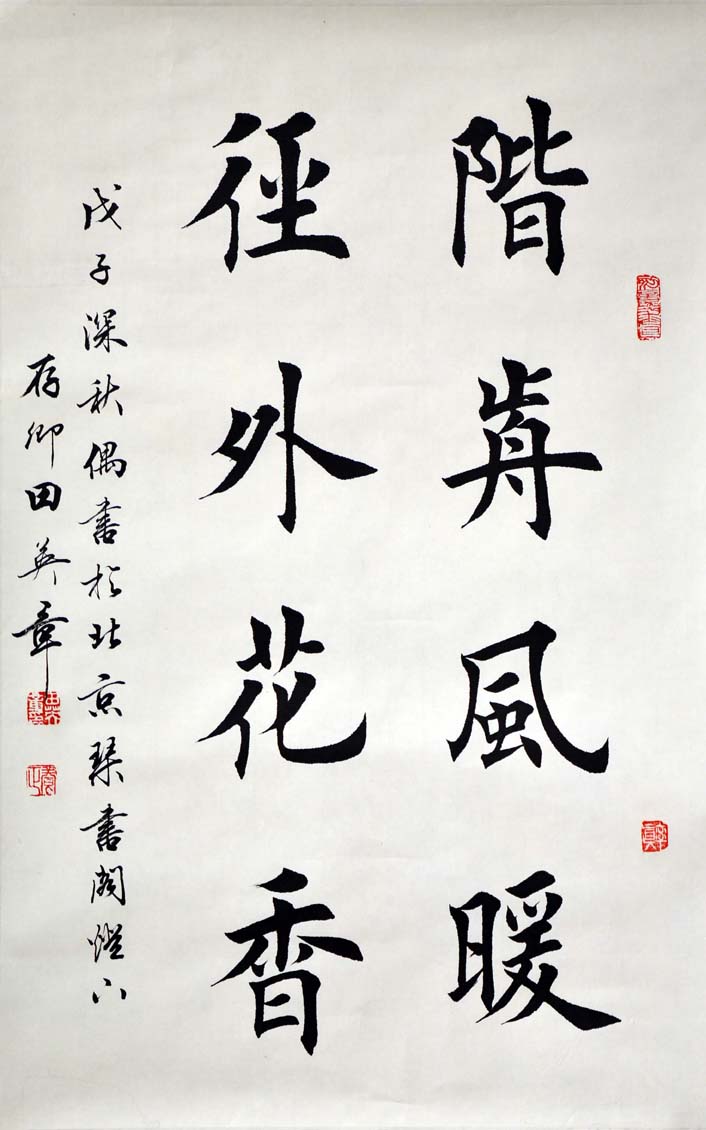 階歬風暖
徑外花香
戊子深秋偶書於北京琹書閣燈下
存卿田英章